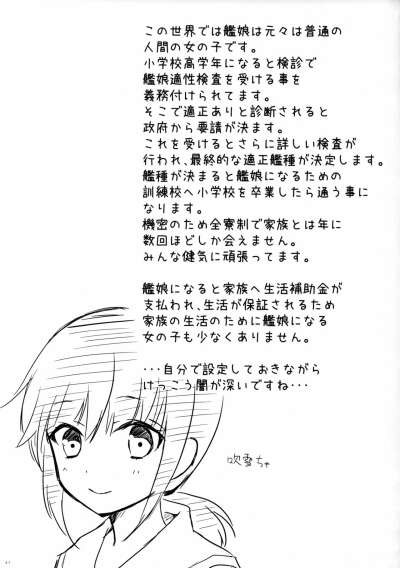 この世界では艦娘は元々は普通の
人間の女の子です。
小学校高学年になると検診で
艦娘適性検査を受ける事を
義務付けられてます。
そこで適正ありと診断されると
政府から要請が決ます。
これを受けるとさらに詳しい検査が
行われ、最終的な適正艦種が決定します。
艦種が決まると艦娘になるための
訓練校へ小学校を卒業したら通う事に
なります。
機密のため全寮制で家族とは年に
数回ほどしか会えません。
みんな健気に頑張ってます。
艦娘になると家族へ生活補助金が
支払われ、生活が保証されるため
家族の生活のために艦娘になる
女の子も少なくありません。
・・・自分で設定しておきながら
けっこう闇が深いですね・・・
吹雪ちゃ